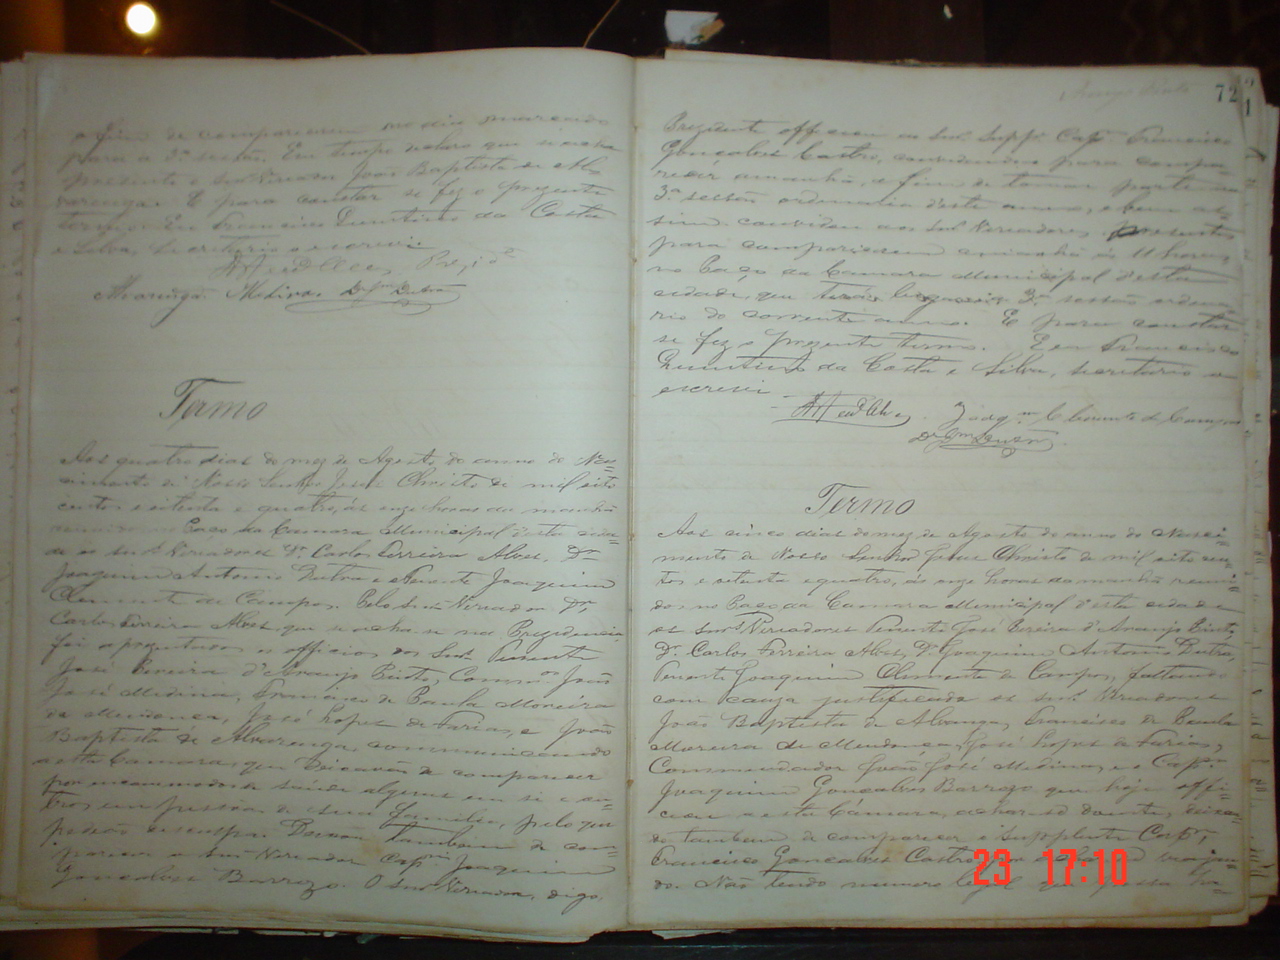 a fim de comparecerem no dia marcado
para a 3ª sessão. Em tempo declaro que se acha
presente o Snr. Vereador João Baptista de Al-
varenga. E para constar se fez o prezente
termo. Eu Francisco Quintino da Costa
e Silva, secretario o escrevi.
Prezid.e
Alvarenga. Medina. Dutra
Termo
Aos quatro dias do mez de Agosto do anno do Nas=
cimento de Nosso Senhor Jesus Christo de mil oito
centos e setenta e quatro, ás onze horas da manhã
reunidos no Paço da Camara Municipal d'esta cida=
de os snr.s Vereadores Dr. Carlos Ferreira Alves, Dr.
Joaquim Antonio Dutra e Tenente Joaquim
Clemente de Campos. Pelo Snr. Vereador Dr.
Carlos Ferreira Alves, que se acha na Prezidencia,
foi aprezentado os officios dos Snr.s Tenente
José Pereira d'Araujo Pinto, Comm.or João
José Medina, Francisco de Paula Moreira
de Mendonça, José Lopes de Faria, e João
Baptista de Alvarenga, communicando
a esta Camara, que deixavão de comparecer
por incommodos de saúde alguns em si e ou=
tros em pessôas de sua familia, pelo que
pedião desculpa. Deixou tambem de com=
parecer o Snr. Vereador Cap.m Joaquim
Gonçalves Barrozo. O Snr. Vereador, digo
72
Prezidente officiou ao Snr. Supp.e Cap.m Francisco
Gonçalves Castro, convidando-o para compa=
recer amanhã, a fim de tomar parte na
3ª sessão ordinaria d'este anno, e bem as=
sim convidou aos Snr.s Vereadores presentes
para comparecerem amanhã ás 11 horas,
no Paço da Camara Municipal d'esta
cidade, que terá lugar a 3ª sessão ordina=
ria do corrente anno. E para constar
se fez o prezente termo. E eu Francisco
Quintino da Costa e Silva, secretario o
escrevi
Joaq.m Clemente de Campos
Dutra
Termo
Aos cinco dias do mez de Agosto do anno do Nasci=
mento de Nosso Senhor Jesus Christo de mil oito cen=
tos e setenta e quatro, ás onze horas da manhã reuni=
dos no Paço da Camara Municipal d'esta cidade
os snr.s Vereadores Tenente José Pereira d'Araujo Pinto,
Dr. Carlos Ferreira Alves, Dr. Joaquim Antonio Dutra,
Tenente Joaquim Clemente de Campos, faltando
com cauza justificada os snr.s Vereadores
João Baptista de Alvarenga, Francisco de Paula
Moreira de Mendonça, José Lopes de Faria,
Commendador João José Medina, e o Cap.m
Joaquim Gonçalves Barrozo que hoje offi=
ciou a esta Câmara, achar-se doente, deixan=
do tambem de comparecer o supplente Cap.m
Francisco Gonçalves Castro
do. Não tendo numero legal que possa ha=
23 17:10